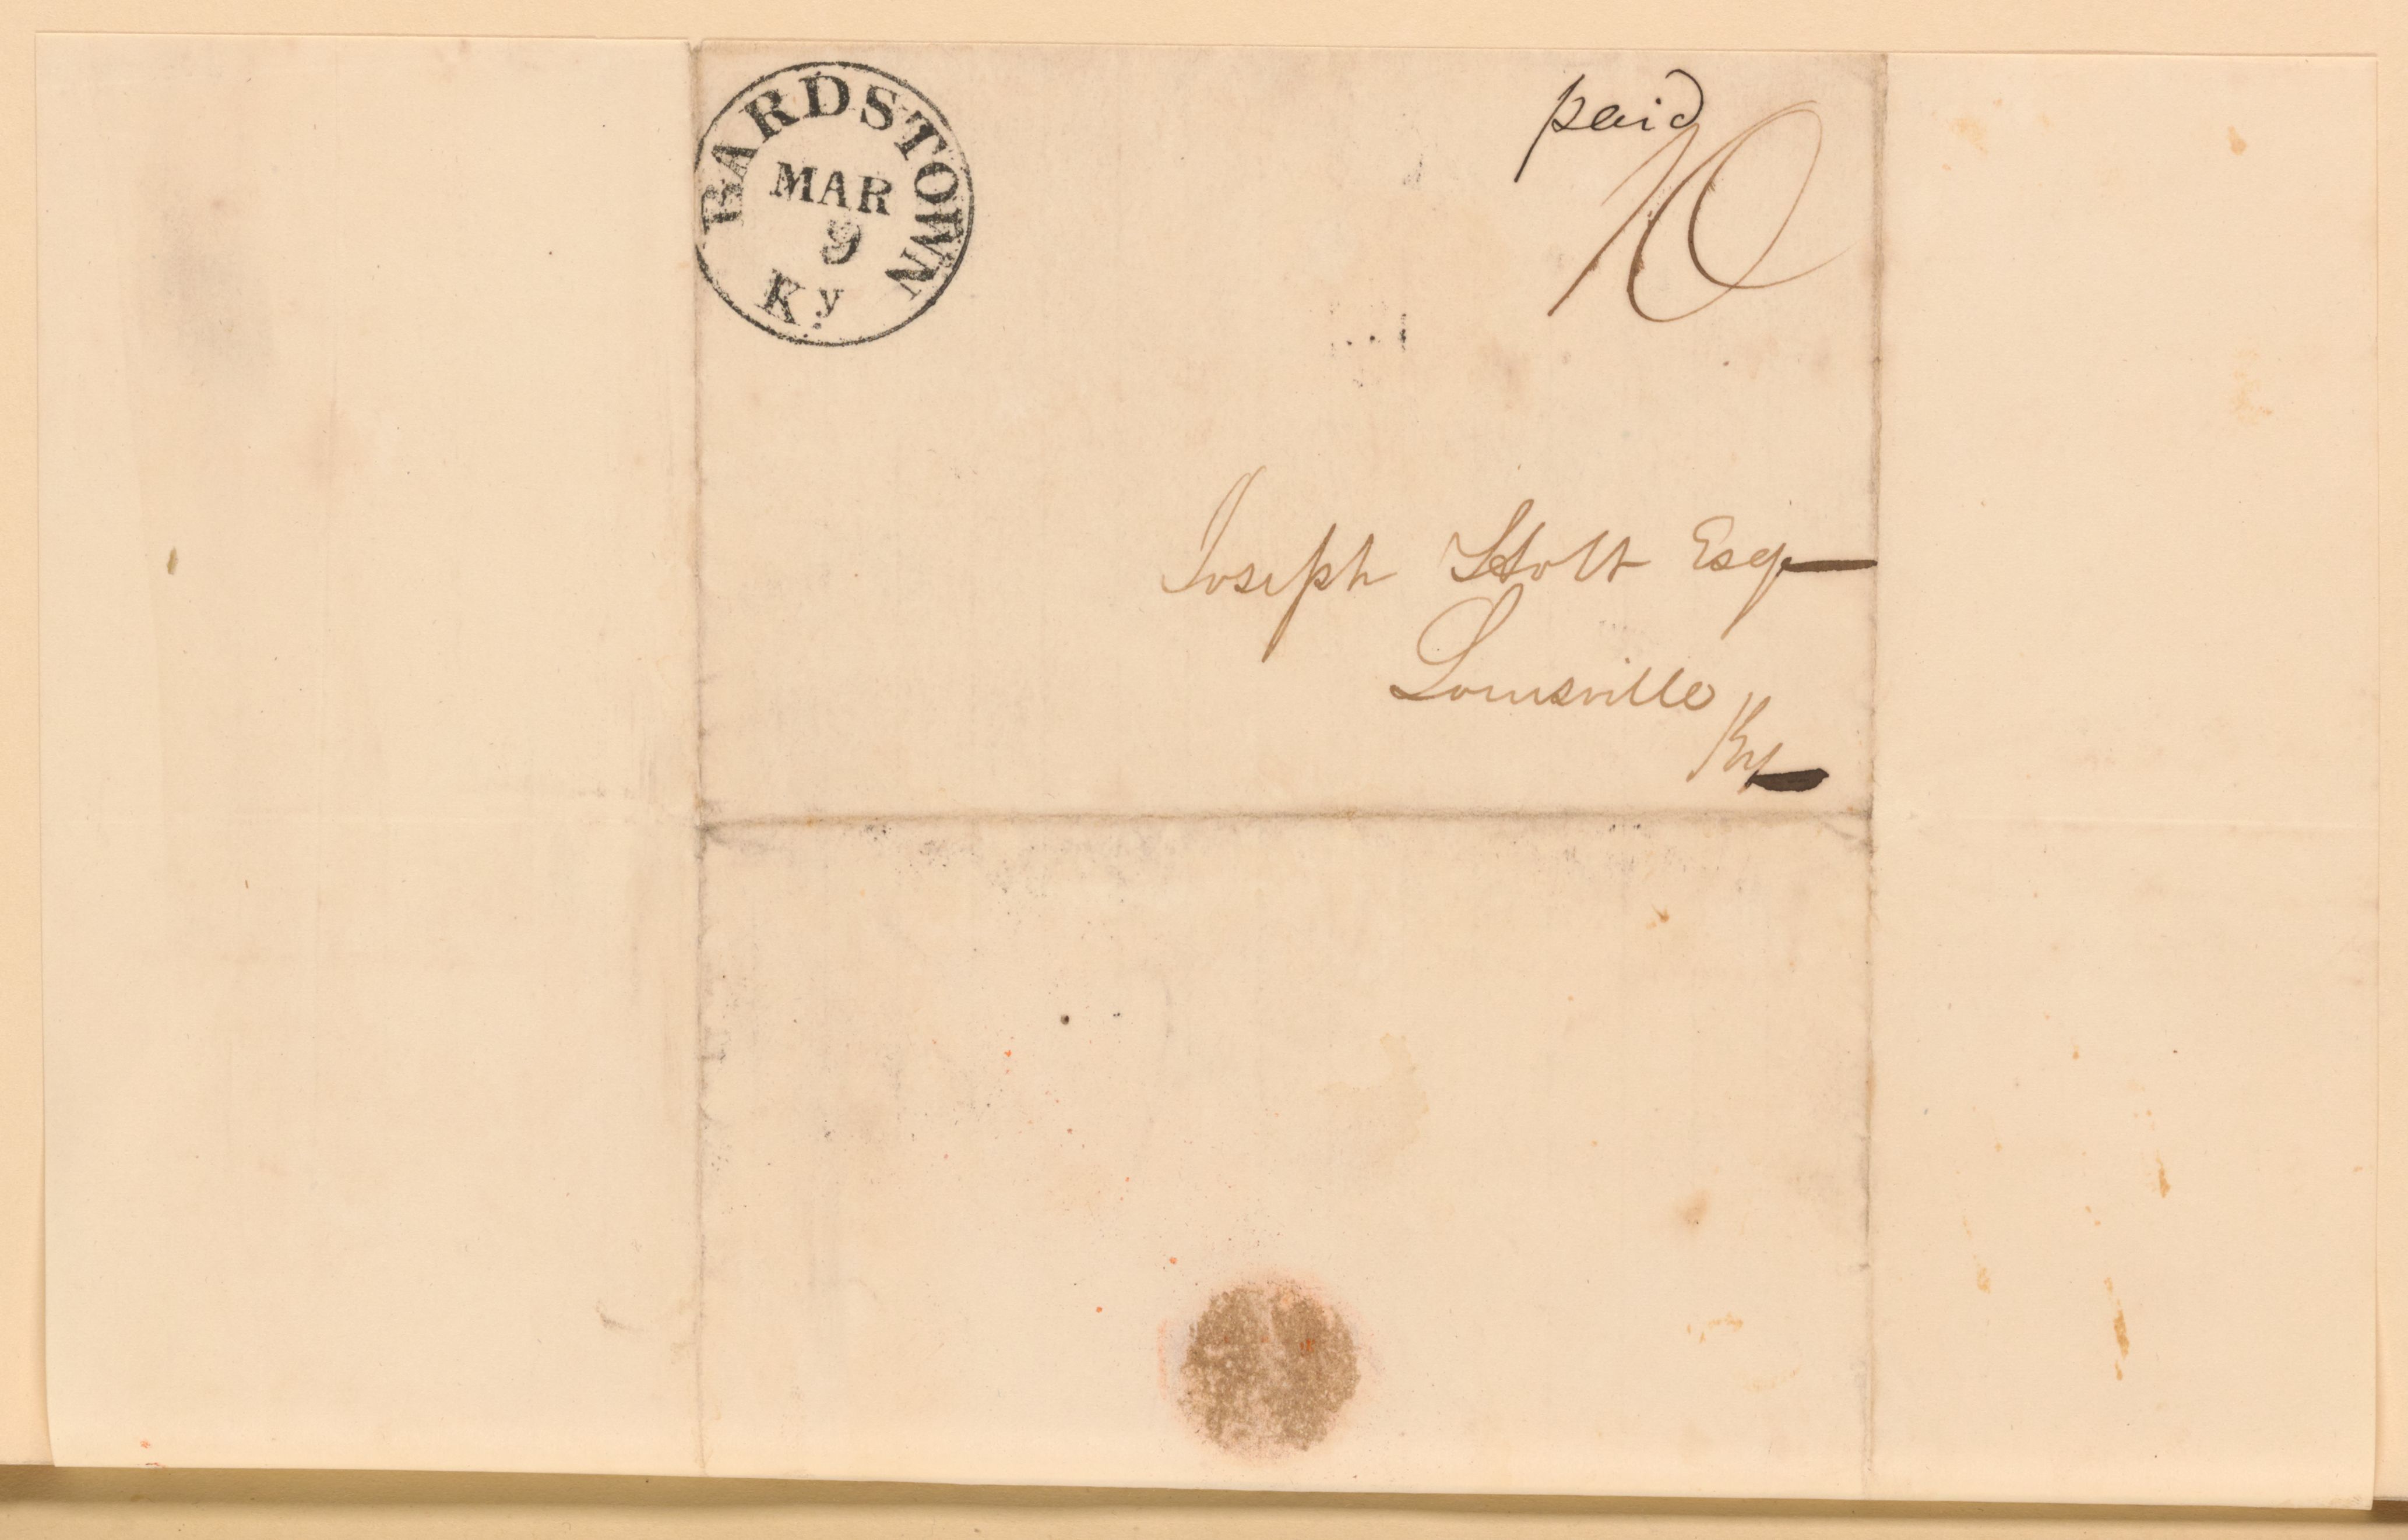 BARDSTOWN
MAR
9
Ky
paid
10
Joseph Holt Esq
Louisville
Ky